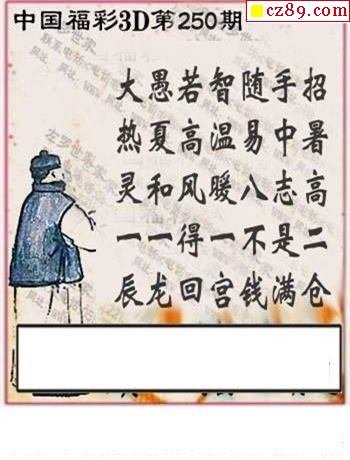 cz89.com
中国福彩3D第250期
大愚若智随手招
热夏高温易中暑
灵和风暖八志高
一一得一不是二
辰龙回宫钱满仓